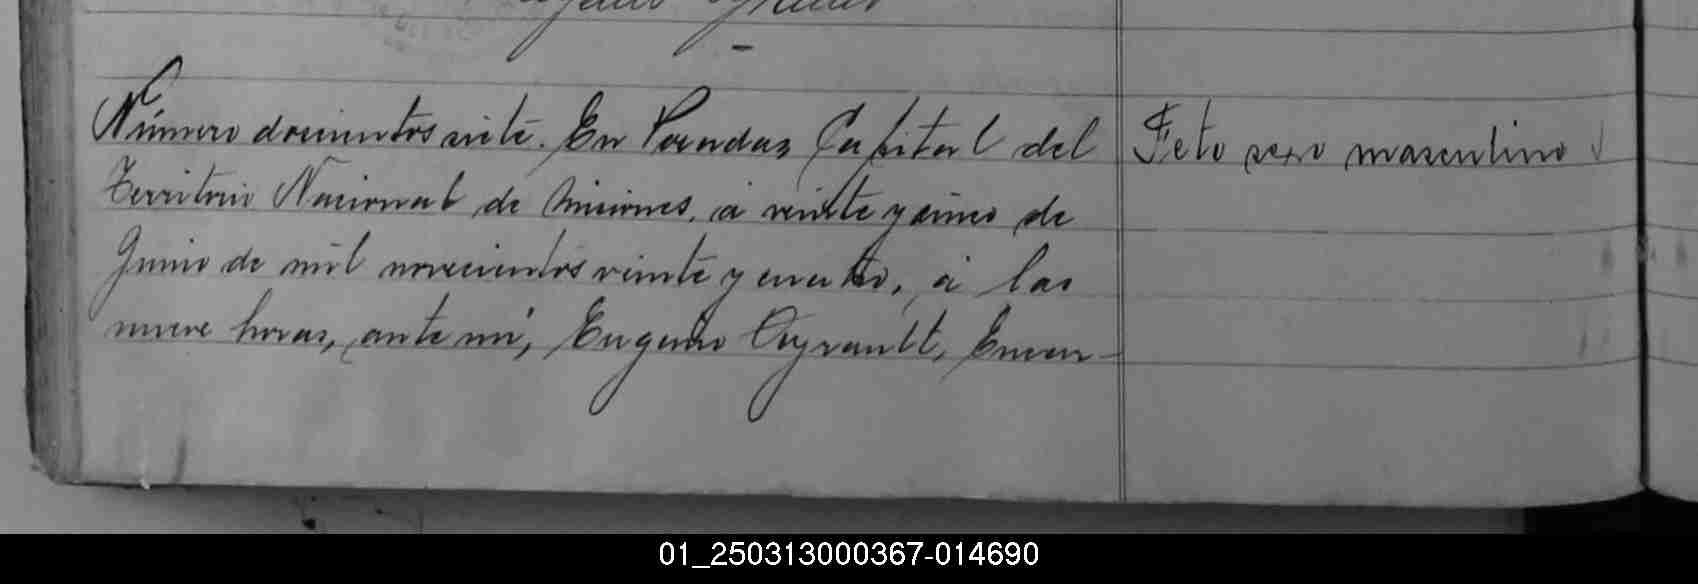 Número doscientos siete. En Posadas Capital del
Feto sexo masculino
Territorio Nacional de Misiones, á veinte y cinco de
Junio de mil novecientos veinte y cuatro, á las
nueve horas, ante mí, Eugenio Ayrault, Encar-
01_250313000367-014690